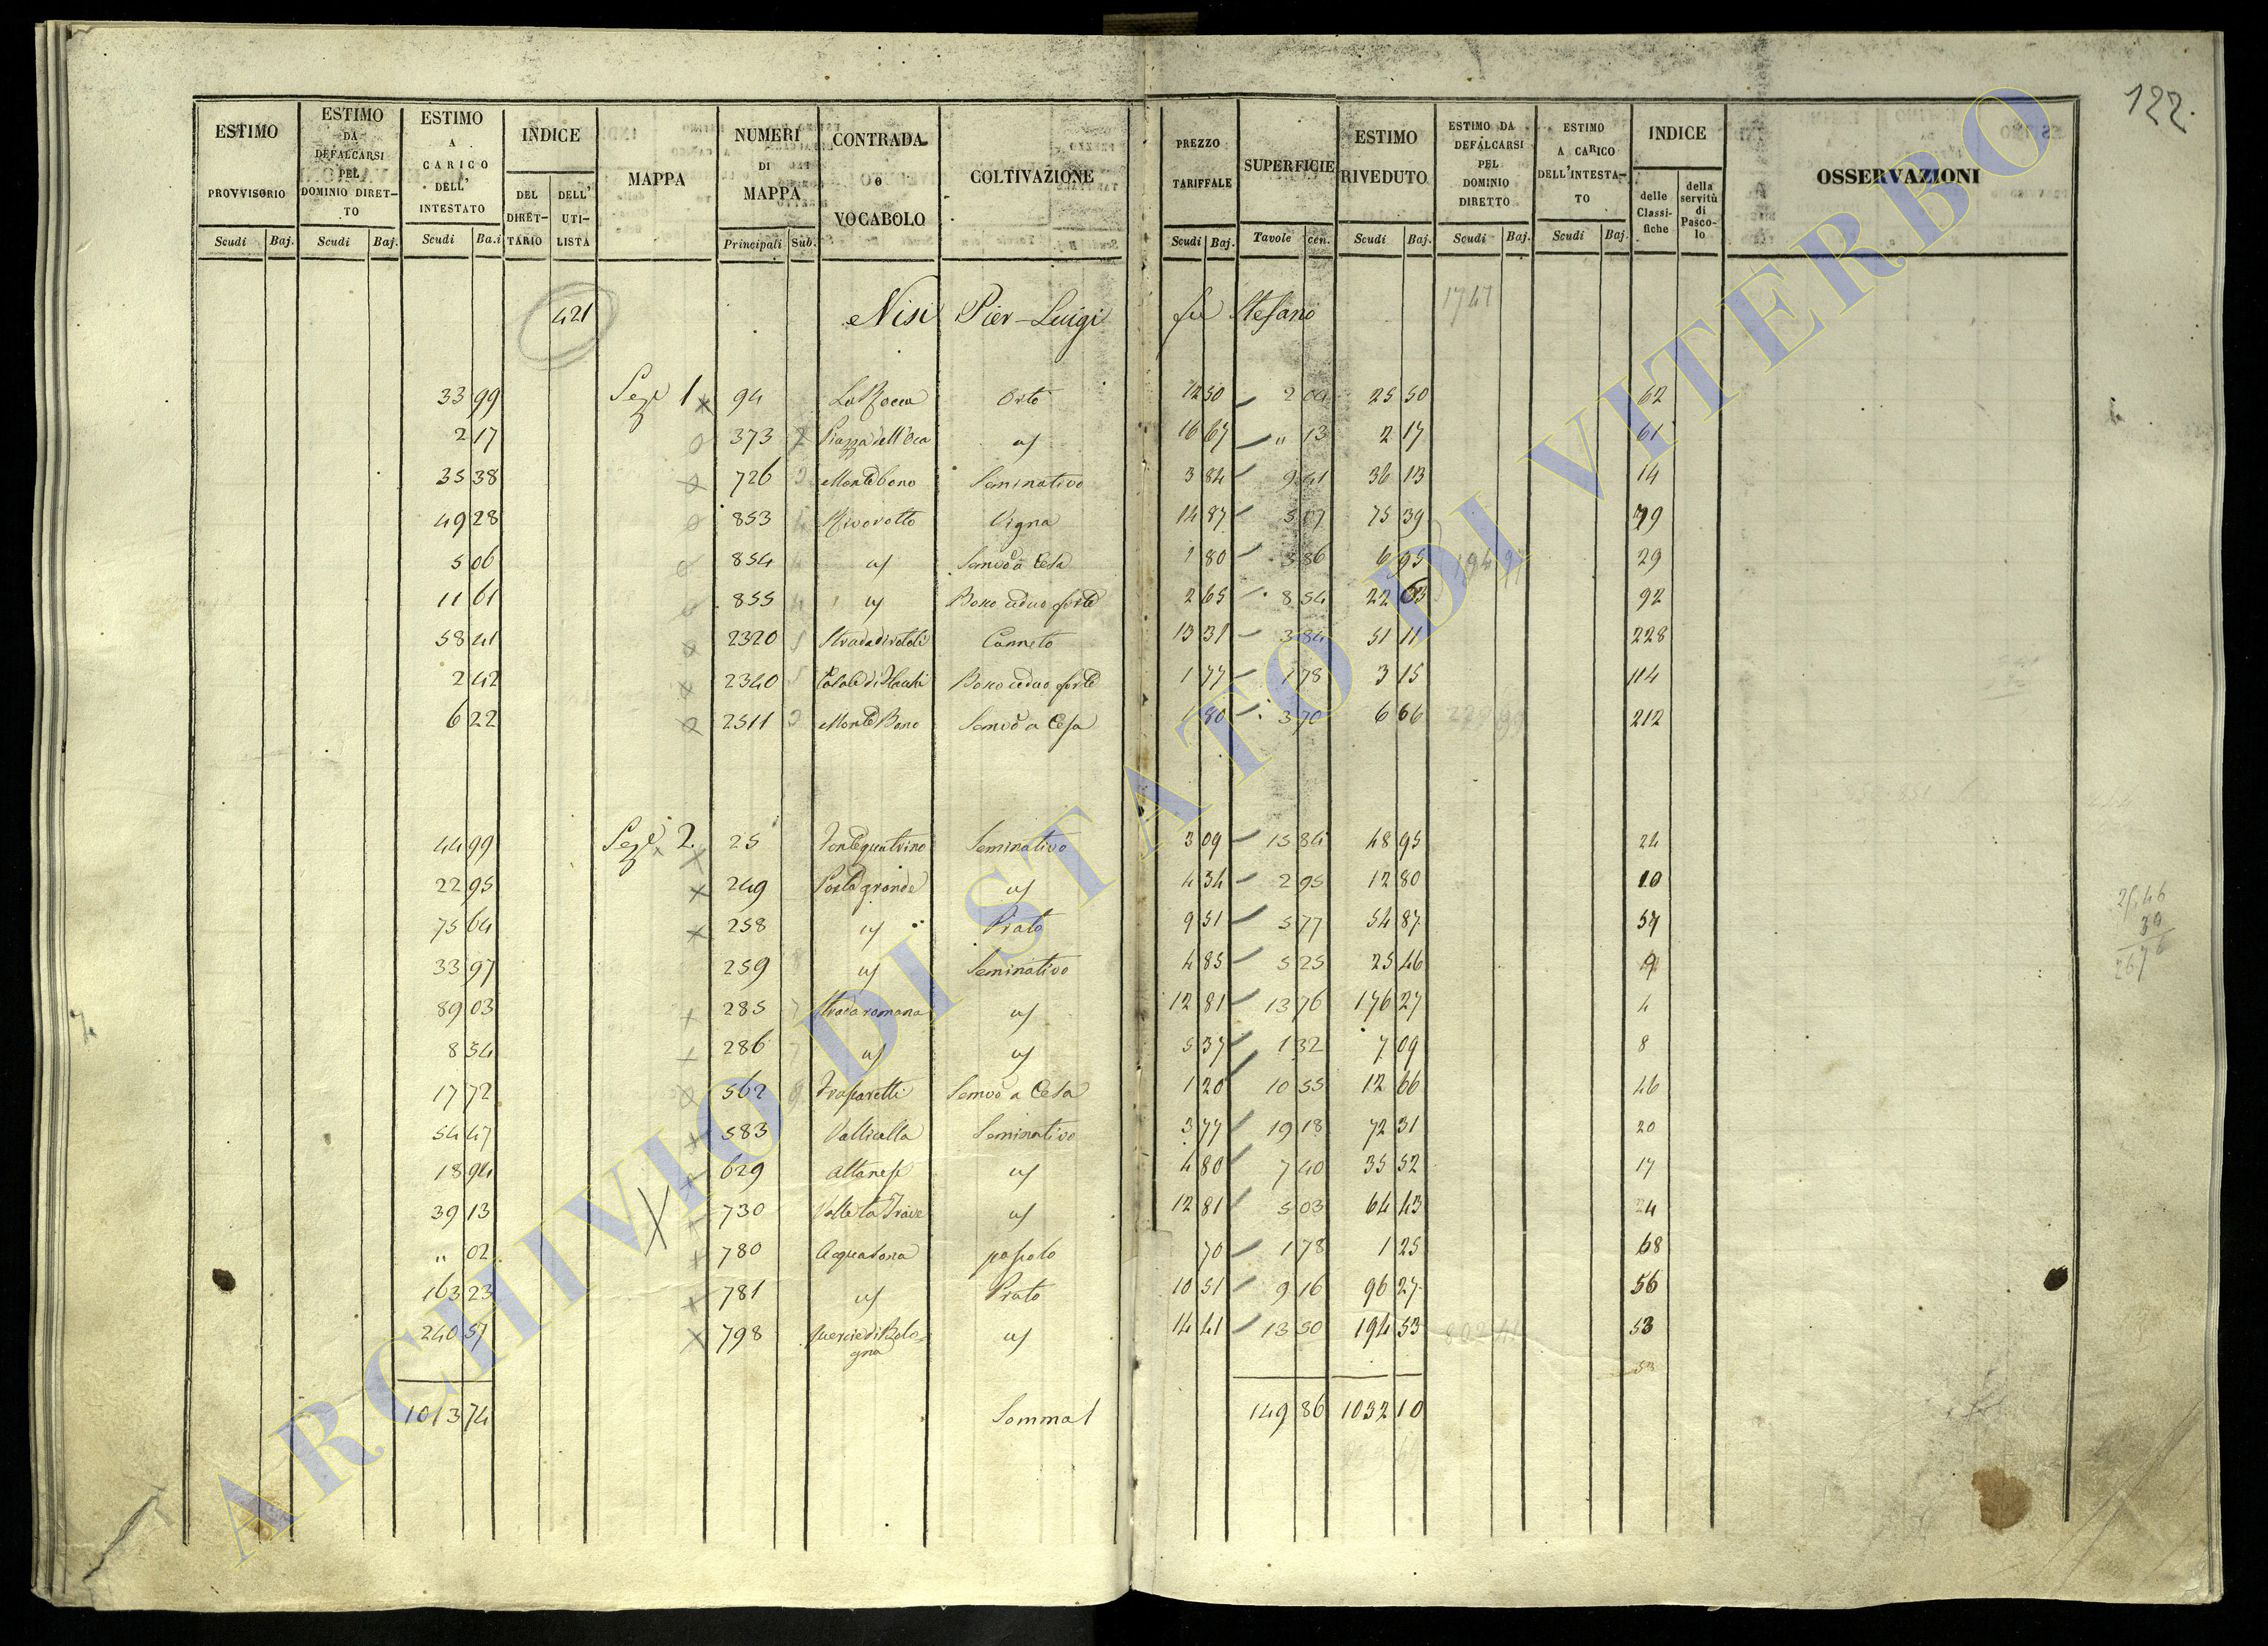 122.
ESTIMO PROVVISORIO Scudi Baj.
ESTIMO DA DEFALCARSI PEL DOMINIO DIRET-TO Scudi Baj.
ESTIMO A CARICO DELL' INTESTATO Scudi Ba.i
INDICE DEL DIRET-TARIO DELL' UTI-LISTA
MAPPA
NUMERI DI MAPPA Principali Sub.
CONTRADA o VOCABOLO
COLTIVAZIONE
PREZZO TARIFFALE Scudi Baj.
SUPERFICIE Tavole cen.
ESTIMO RIVEDUTO Scudi Baj.
ESTIMO DA DEFALCARSI PEL DOMINIO DIRETTO Scudi Baj.
ESTIMO A CARICO DELL'INTESTA-TO Scudi Baj.
INDICE delle Classi-fiche della servitù di Pasco-lo
OSSERVAZIONI
421 Nisi Pier-Luigi fu Stefano 1747
33 99 Sez.e 1 94 La Rocca Orto 12 50 2 04 25 50 62
2 17 373 2 Piazza dell'Oca id 16 67 " 13 2 17 61
35 38 726 3 Monte bono Seminativo 3 84 9 41 36 13 14
49 28 853 4 Rivorotto Vigna 14 87 5 07 75 39 79
5 06 854 4 id Semvo a Cesa 1 80 3 86 6 95 29
11 61 855 4 id Bosco ceduo forte 2 65 8 54 22 63 92
58 41 2320 5 Canneto 13 31 3 84 51 11 228
2 42 2340 5 Bosco ceduo forte 1 77 1 78 3 15 114
6 22 2511 3 Monte Bono Semvo a Cesa 1 80 3 70 6 66 229 99 212
44 99 Sez.e 2. 25 Seminativo 3 09 15 84 48 95 24
22 95 249 grande id 4 34 2 95 12 80 10
75 64 258 id Prato 9 51 5 77 54 87 54
33 97 259 8 id Seminativo 4 85 5 25 25 46 9
89 03 285 7 Strada romana id 12 81 13 76 176 27 4
8 54 286 7 id id 5 37 1 32 7 09 8
17 72 562 9 Semvo a Cesa 1 20 10 55 12 66 46
54 47 583 Vallicella Seminativo 3 77 19 18 72 31 20
18 94 629 Altanese id 4 80 7 40 35 52 17
39 13 730 Valle la Trave id 12 81 5 03 64 43 24
" 02 780 Acquatona pascolo 70 1 78 1 25 68
163 23 781 id Prato 10 51 9 16 96 27 56
240 57 798 Querciedi Bolo-gna id 14 41 13 50 194 53 802 41 53
53
1013 74 Somma 149 86 1032 10
25,46
30
26 76
ARCHIVIO DI STATO DI VITERBO